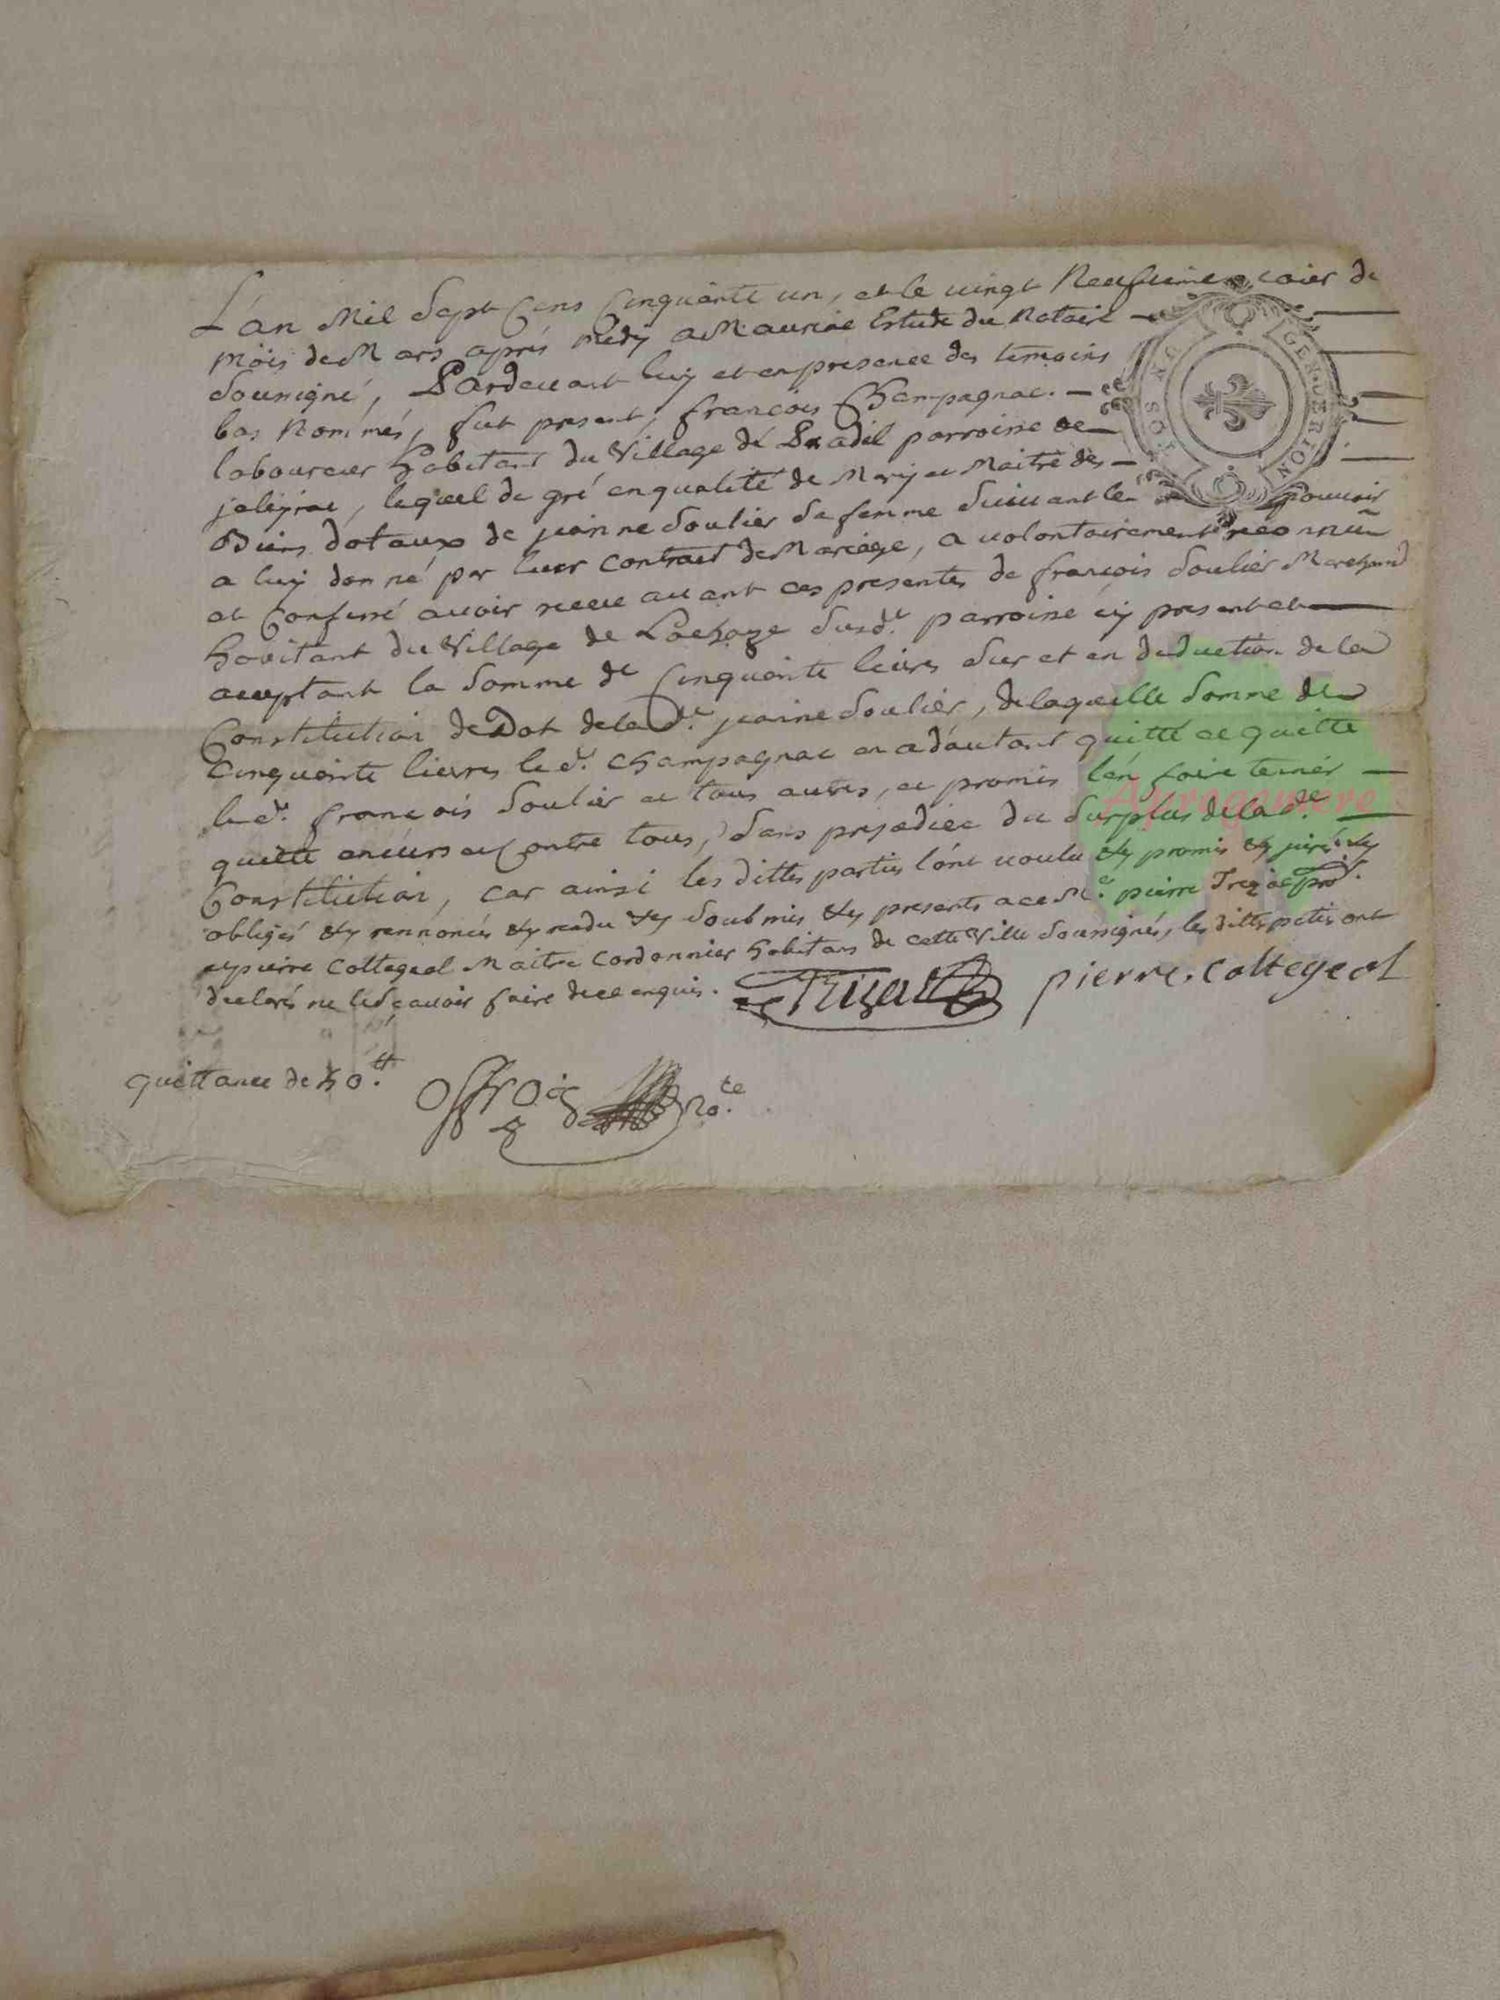 L'an Mil Sept Cens Cinquante un, et le vingt Neufvieme jour de
Mois de Mars aprés Midy a Mauriac Estude du Notaire
Sousigné, Pardevant luy et en presence des temoins
bas Nommés, fut present, françois Champagnac.
laboureur habitant du Village de Pradel parroisse de
jaleyrac, lequel de gré en qualité de Mary et Maitre des
Biens dotaux de jeanne Soulier Sa femme Suivant le pouvoir
a luy donné par leur Contract de Mariage, a volontairement reconnu
et Confessé avoir receu avant ces presentes de françois Soulier Marchand
habitant du Village de Lachaze Susd.te parroisse icy present et
acceptant la Somme de Cinquante livres Sur et en deduction de la
Constitution de Dot de lad.te jeanne Soulier, de laquelle Somme de
Cinquante livres led.t Champagnac en a d'autant quitté et quitte
led.t françois Soulier et tous autres, et promis l'en faire tenir
quitte envers et Contre tous, Sans prejudice du Surplus de lad.te
Constitution, car ainsi les dittes parties l'ont voulu &y promis &y juré &y
obligés &y rennoncés &y rendu &y Soubmis &y presents a ce M.e pierre Trizac Pr.
et pierre Cottegeol Maitre Cordonnier habitans de cette Ville Soussignés, les dittes parties ont
declaré ne le Sçavoir faire de ce enquis. Trizac pierre. Cottegeol
quittance de 50.tt No.te
GEN. DE RION
Apragamere